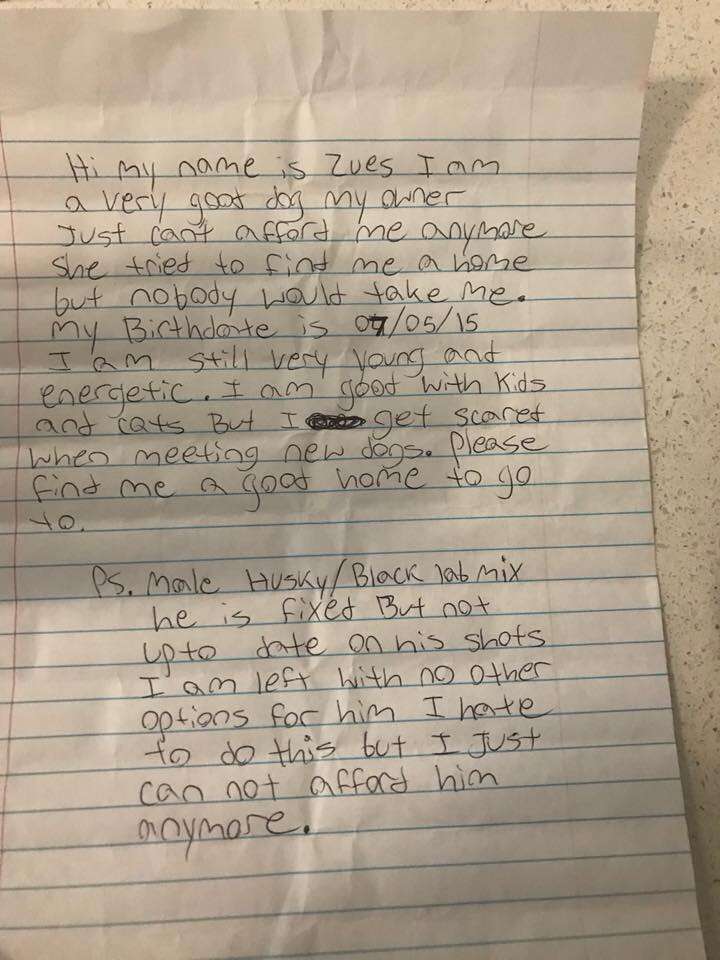 Hi my name is Zues I am
a very good dog my owner
Just can't afford me anymore
She tried to find me a home
but nobody would take me.
my Birthdate is 07/05/15
I am still very young and
energetic. I am good with Kids
and cats But I get scared
when meeting new dogs. Please
find me a good home to go
to.
Ps. Male Husky/Black lab mix
he is fixed But not
upto date on his shots
I am left with no other
options for him I hate
to do this but I Just
can not afford him
anymore.